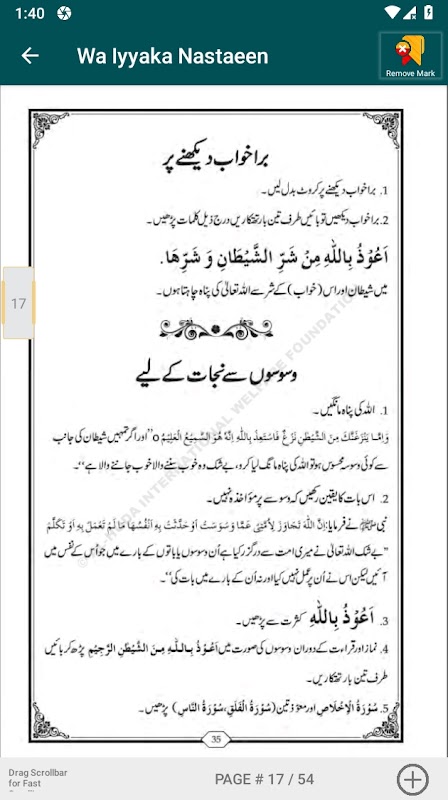 1:40
Wa Iyyaka Nastaeen
Remove Mark
برا خواب دیکھنے پر
1. برا خواب دیکھنے پر کروٹ بدل لیں۔
2. برا خواب دیکھیں تو بائیں طرف تین بار تھتکاریں درج ذیل کلمات پڑھیں۔
اَعُوْذُ بِاللّٰهِ مِنْ شَرِّ الشَّيْطَانِ وَ شَرِّهَا.
میں شیطان اور اس (خواب) کے شر سے اللہ تعالیٰ کی پناہ چاہتا ہوں۔
17
وسوسوں سے نجات کے لیے
1. اللہ کی پناہ مانگیں۔
وَاِمَّا يَنْزَغَنَّكَ مِنَ الشَّيْطٰنِ نَزْغٌ فَاسْتَعِذْ بِاللّٰهِ اِنَّهٗ هُوَ السَّمِيْعُ الْعَلِيْمُ o’’ اور اگر تمہیں شیطان کی جانب
سے کوئی وسوسہ محسوس ہو تو اللہ کی پناہ مانگ لیا کرو، بے شک وہ خوب سننے والا خوب جاننے والا ہے‘‘۔
2. اس بات کا یقین رکھیں کہ وسوسے پر مؤاخذہ نہیں۔
نبی ﷺ نے فرمایا: اِنَّ اللّٰهَ تَجَاوَزَ لِاُمَّتِيْ عَمَّا وَسْوَسَتْ اَوْ حَدَّثَتْ بِهٖ اَنْفُسُهَا مَا لَمْ تَعْمَلْ بِهٖ اَوْ تَكَلَّمْ
’’بے شک اللہ تعالیٰ نے میری امت سے درگزر کیا ہے اُن وسوسوں یا باتوں کے بارے میں جو اُس کے نفس میں
آئیں لیکن اس نے اُن پر عمل نہیں کیا اور نہ اُن کے بارے میں بات کی‘‘۔
3. اَعُوْذُ بِاللّٰهِ کثرت سے پڑھیں۔
4. نماز اور قراءت کے دوران وسوسوں کی صورت میں اَعُوْذُ بِاللّٰهِ مِنَ الشَّيْطٰنِ الرَّجِيْمِ پڑھ کر بائیں
طرف تین بار تھتکاریں۔
5. سُوْرَةُ الْاِخْلَاصِ اور معوّذتین (سُوْرَةُ الْفَلَقِ، سُوْرَةُ النَّاسِ) پڑھیں۔
35
INTERNATIONAL WELFARE FOUNDATION
Drag Scrollbar
for Fast
PAGE # 17 / 54